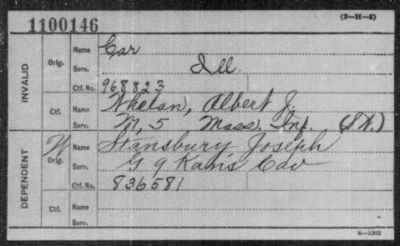 1100146
(3-H-5)
INVALID
Orig.
Name Car
Serv. Ill.
Ctf. No. 968823
Ctf.
Name Whelan, Albert J.
Serv. M, 5 Mass. Inf. (S.W.)
DEPENDENT
W
Orig.
Name Stansbury Joseph
Serv. G 9 Kans Cav
Ctf. No. 836581
Ctf.
Name
Serv.